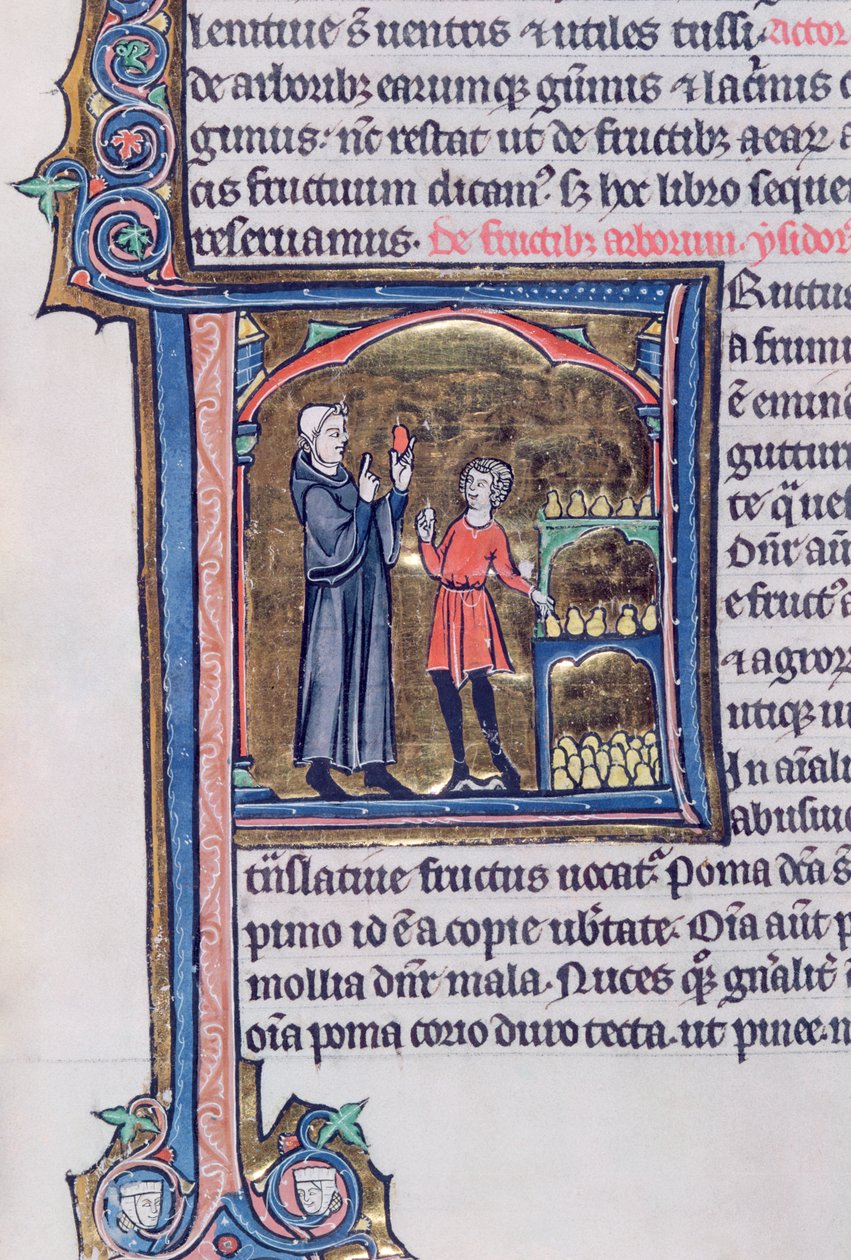 lenitiue s̄ uentris ⁊ utiles tussi. Actor
de arboribꝫ earumqꝫ gūmis ⁊ lac̄mis
gimus. nc̄ restat ut de fructibꝫ
cis fructuum dicamꝰ. sꝫ hoc libro seque
reseruamus. De fructibꝫ arborum. ysidor
Ructus
a frumi
ē emine
gutturi
te
Dn̄r aūt
e fructꝰ
⁊ agroꝝ
utiqꝫ
In aīali
abusiue
tn̄slatiue fructus uocatᷣ. Poma dc̄a s̄
pimo id ē a copie ub̄tate. Oīa aūt p
mollia dn̄r mala. Nuces gn̄alit̄
oīa poma corio duro tecta. ut pinee.